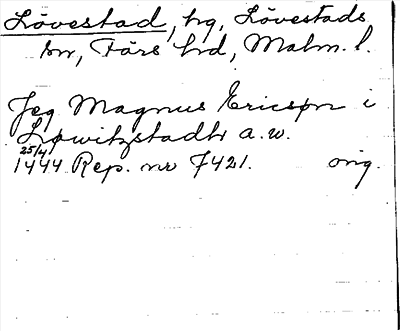 Lövestad, by, Lövestads
sn, Färs hd, Malm. l.
Jeg Magnus Ericsøn i
Løwitzstadh a.w.
25/4
1444 Rep. nr 7421. orig.